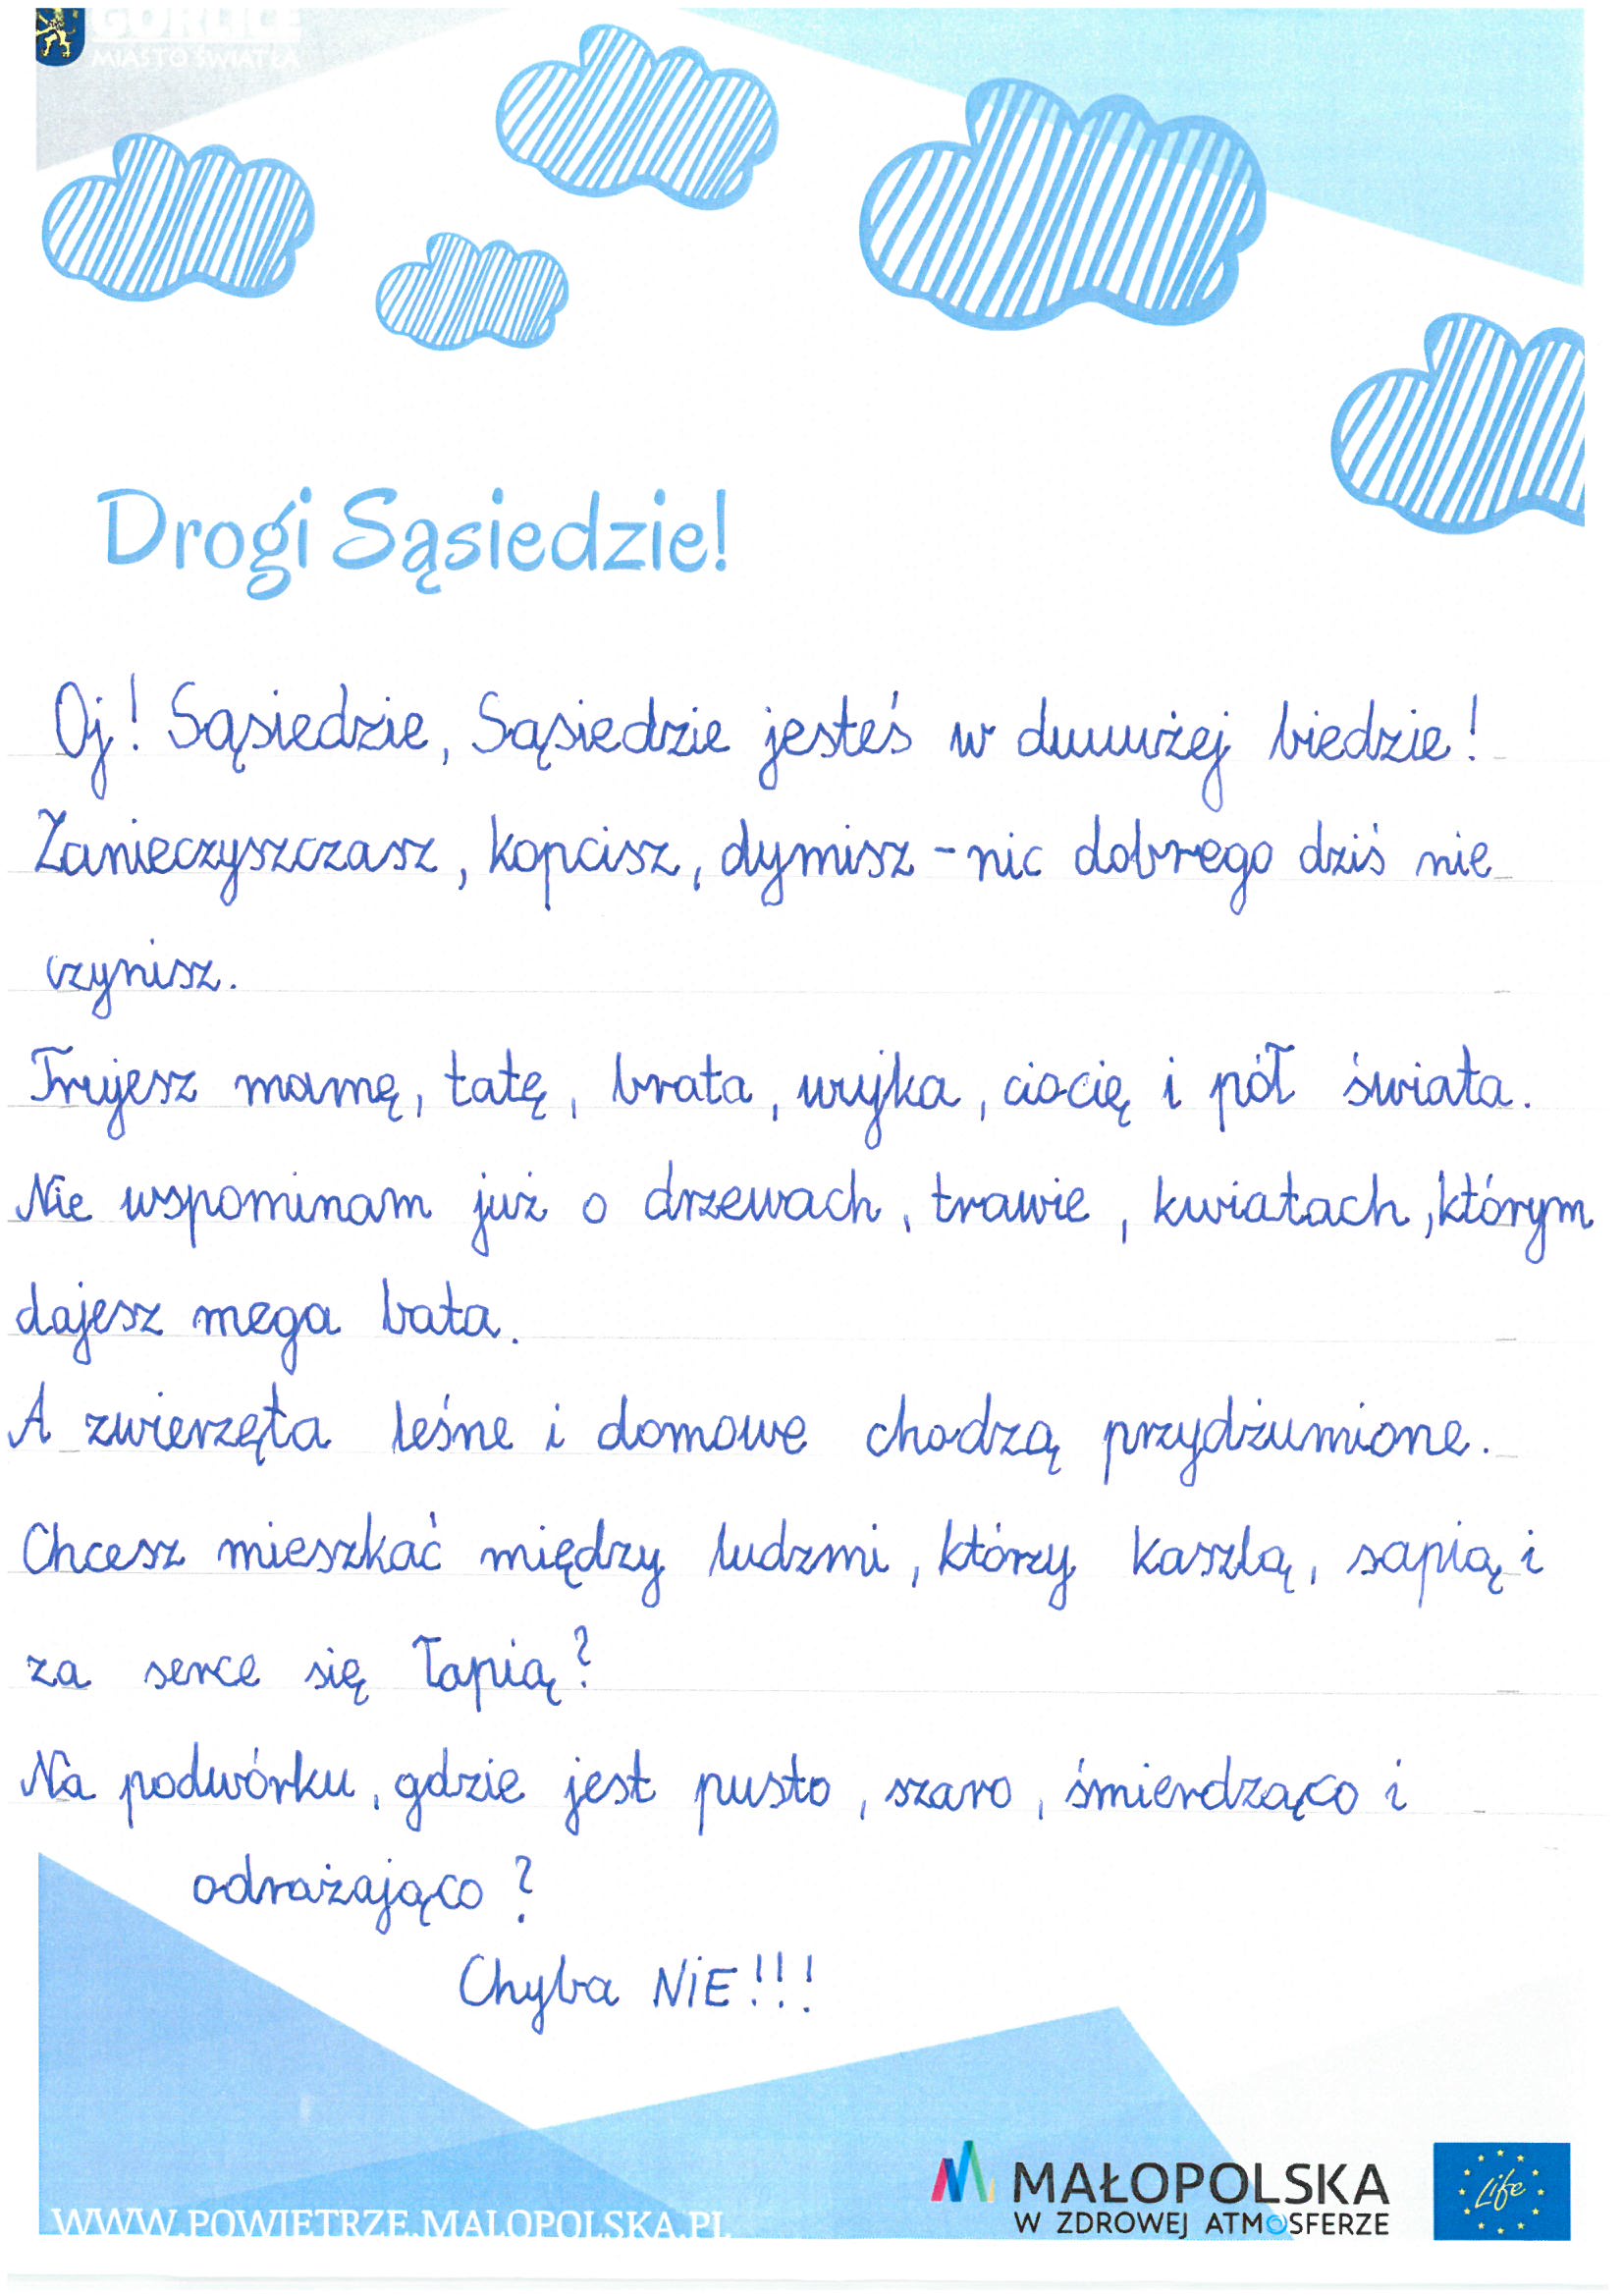 GORLICE
MIASTO ŚWIATŁA
Drogi Sąsiedzie!
Oj! Sąsiedzie, Sąsiedzie jesteś w duuuużej biedzie!
Zanieczyszczasz, kopcisz, dymisz - nic dobrego dziś nie
czynisz.
Trujesz mamę, tatę, brata, wujka, ciocię i pół świata.
Nie wspominam już o drzewach, trawie, kwiatach, którym
dajesz mega bata.
A zwierzęta leśne i domowe chodzą przydżumione.
Chcesz mieszkać między ludzmi, którzy kaszlą, sapią i
za serce się łapią?
Na podwórku, gdzie jest pusto, szaro, śmierdząco i
odrażająco?
Chyba NiE!!!
WWW.POWIETRZE.MALOPOLSKA.PL
MAŁOPOLSKA
W ZDROWEJ ATMOSFERZE
Life